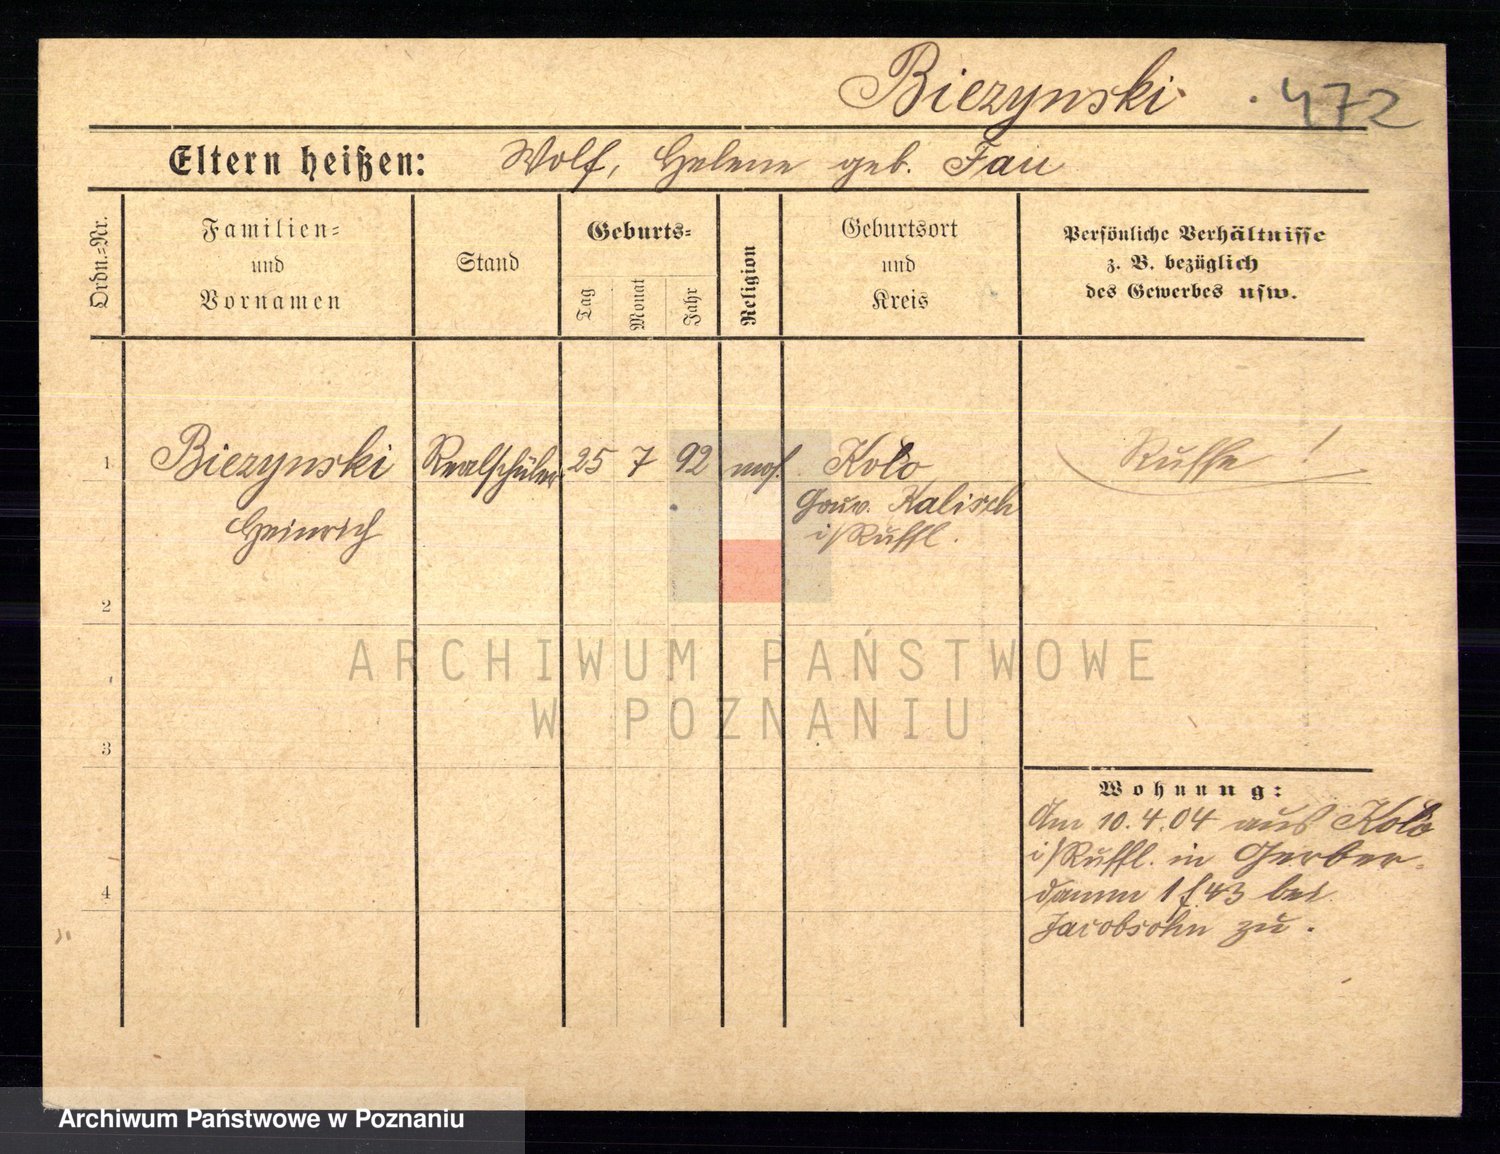 Biezynski
472
Eltern heißen: Wolf, Helene geb. Fau
Ordn.-Nr.
Familien-
und
Vornamen
Stand
Geburts-
Tag
Monat
Jahr
Religion
Geburtsort
und
Kreis
Persönliche Verhältnisse
z. B. bezüglich
des Gewerbes usw.
1 Biezynski Realschüler 25 7 92 mos. Kolo Russe !
Heinrich Gouv. Kalisch
i/Russl.
2
3
4
Wohnung:
Am 10.4.04 aus Kolo
i/Russl. in Gerber-
damm 1 f. 43 bei
Jacobsohn zu.
ARCHIWUM PAŃSTWOWE
W POZNANIU
Archiwum Państwowe w Poznaniu